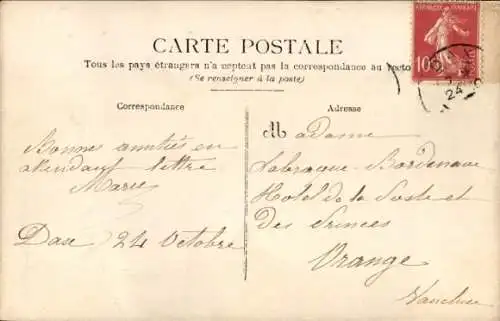 CARTE POSTALE
Tous les pays étrangers n'acceptent pas la correspondance au recto
(Se renseigner à la poste)
Correspondance
Adresse
10
24
Bonnes amitiés en
attendant lettre
Marie
Dax 24 Octobre
Madame
Labraque-Bordenave
Hotel de la Poste et
des Princes
Orange
Vaucluse